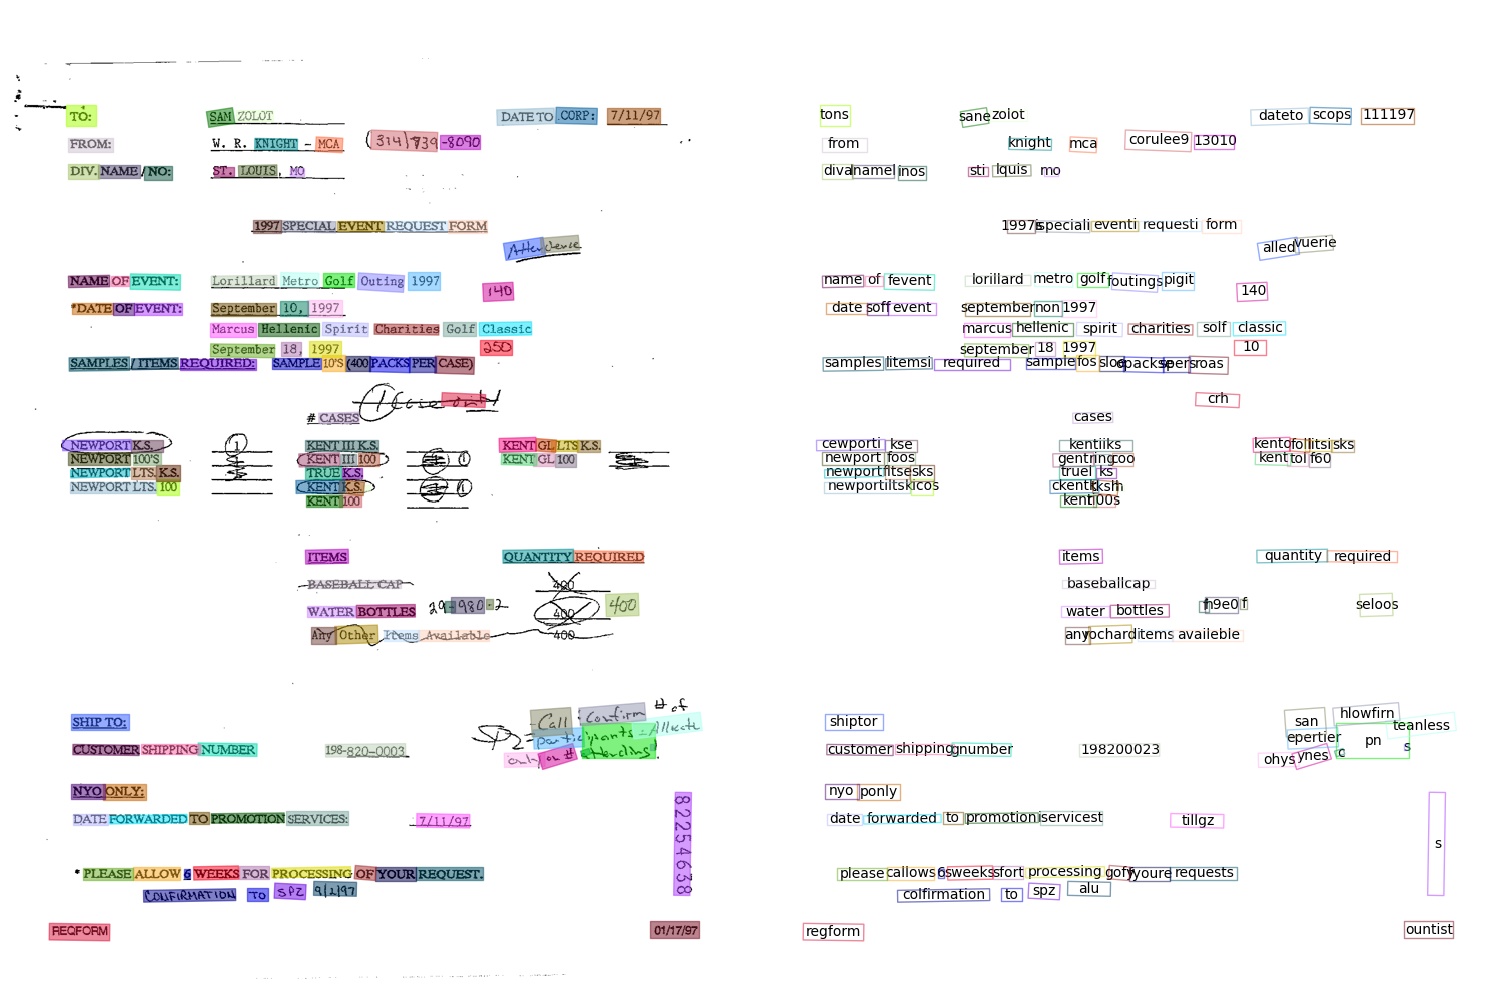 TO: SAM ZOLOT DATE TO CORP: 7/11/97
FROM: W. R. KNIGHT - MCA (314) 739-8090
DIV. NAME/NO: ST. LOUIS, MO
1997 SPECIAL EVENT REQUEST FORM
Attendence
NAME OF EVENT: Lorillard Metro Golf Outing 1997 140
*DATE OF EVENT: September 10, 1997
Marcus Hellenic Spirit Charities Golf Classic
September 18, 1997 250
SAMPLES / ITEMS REQUIRED: SAMPLE 10'S (400 PACKS PER CASE)
1 Case only
# CASES
NEWPORT K.S. 1 KENT III K.S. KENT GL LTS K.S.
NEWPORT 100'S KENT III 100 1 KENT GL 100
NEWPORT LTS. K.S. TRUE K.S.
NEWPORT LTS. 100 KENT K.S. 1
KENT 100
ITEMS QUANTITY REQUIRED
BASEBALL CAP 400
WATER BOTTLES 29-980-2 400 400
Any Other Items Available 400
SHIP TO: SPZ - Call : Confirm # of
participants - Allocate
only on # Attending!
CUSTOMER SHIPPING NUMBER 198-820-0003
NYO ONLY:
DATE FORWARDED TO PROMOTION SERVICES: 7/11/97
82254638
* PLEASE ALLOW 6 WEEKS FOR PROCESSING OF YOUR REQUEST.
CONFIRMATION TO SPZ 9/2/97
REQFORM 01/17/97
tons sane zolot dateto scops 111197
from knight mca corulee9 13010
diva namel inos sti lquis mo
1997s speciali eventi requesti form
alled vuerie
name of fevent lorillard metro golf foutings pigit 140
date soff event september non 1997
marcus hellenic spirit charities solf classic
september 18 1997 10
samples litemsi required sample fos sloe packse pers roas
crh
cases
cewporti kse kentiiks kento foll itsi sks
newport foos gentring coo kent tol f60
newport fltse sks truel ks
newport iltski cos ckentk
kent 100s
items quantity required
baseballcap
water bottles h9e0 f seloos
any ochard items availeble
shiptor san hlowfirn
epertier pn teanless
customer shipping gnumber 198200023 ohys ynes c s
nyo ponly
date forwarded to promotion servicest tillgz
s
please callows 6 sweeks fort processing gof youre requests
colfirmation to spz alu
regform ountist